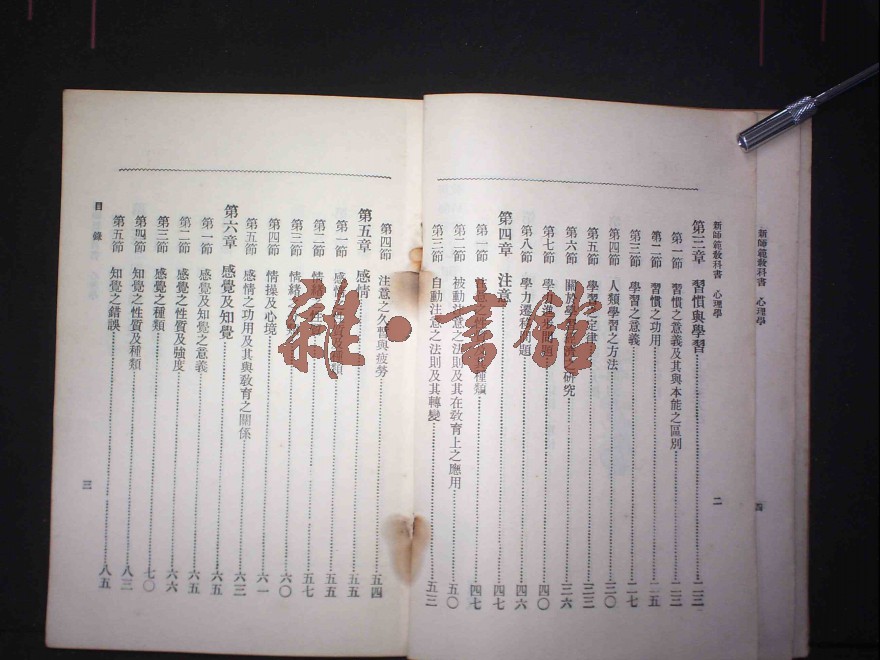 新師範敎科書 心理學
四
新師範敎科書 心理學
二
第三章 習慣與學習 二三
第一節 習慣之意義及其與本能之區別 二三
第二節 習慣之功用 二五
第三節 學習之意義 二七
第四節 人類學習之方法 三〇
第五節 學習之定律 三三
第六節 關於學 之研究 三六
第七節 學力進 問題 四〇
第八節 學力遷移問題 四六
第四章 注意 四七
第一節 種類 四七
第二節 被動注意之法則及其在敎育上之應用 五〇
第三節 自動注意之法則及其轉變 五三
第四節 注意之久暫與疲勞 五四
第五章 感情 五五
第一節 感情 種類 五五
第二節 情緒 五七
第三節 情緒 類 六〇
第四節 情操及心境 六一
第五節 感情之功用及其與敎育之關係 六三
第六章 感覺及知覺 六五
第一節 感覺及知覺之意義 六五
第二節 感覺之性質及強度 六六
第三節 感覺之種類 七〇
第四節 知覺之性質及種類 八三
第五節 知覺之錯誤 八五
目錄
三
雜·書館